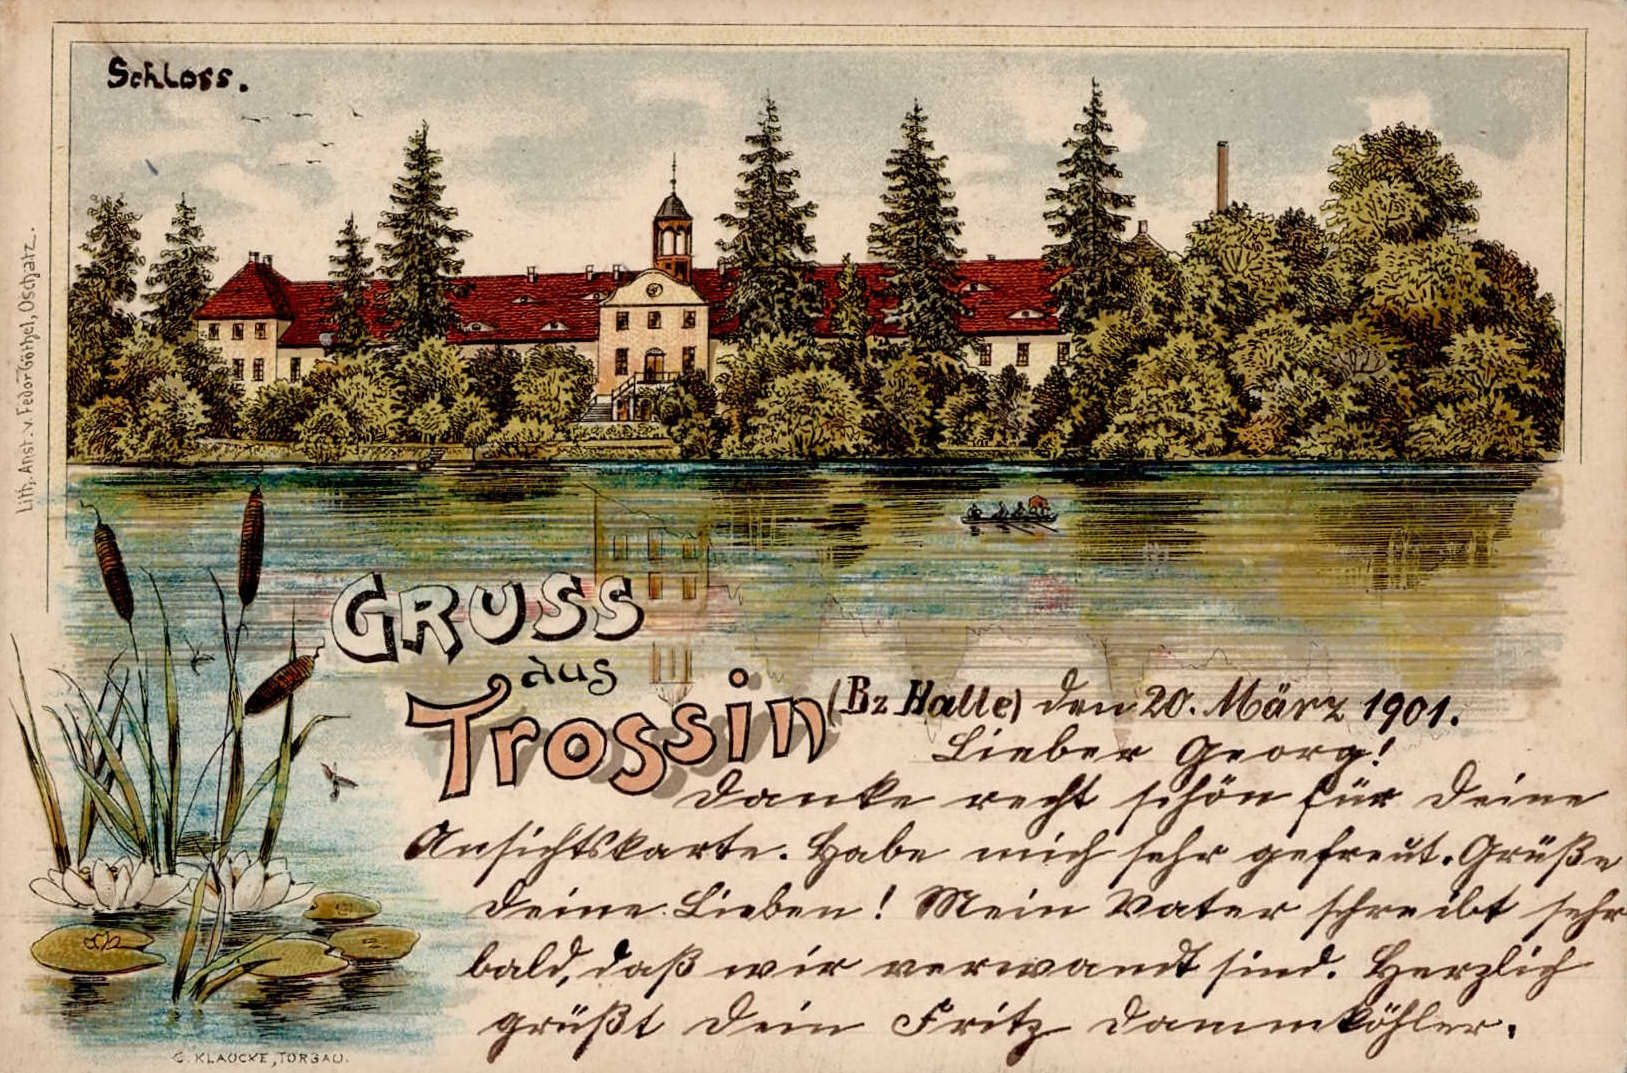 Schloss.
Lith. Anst. v. Fedor Göthel, Oschatz.
GRUSS
aus
Trossin (Bz Halle) den 20. März 1901.
Lieber Georg!
Danke recht schön für Deine
Ansichtskarte. Habe mich sehr gefreut. Grüße
Deine Lieben! Mein Vater schreibt sehr
bald, daß wir verwandt sind. Herzlich
grüßt Dein Fritz Dammköhler.
C. KLAUCKE, TORGAU.